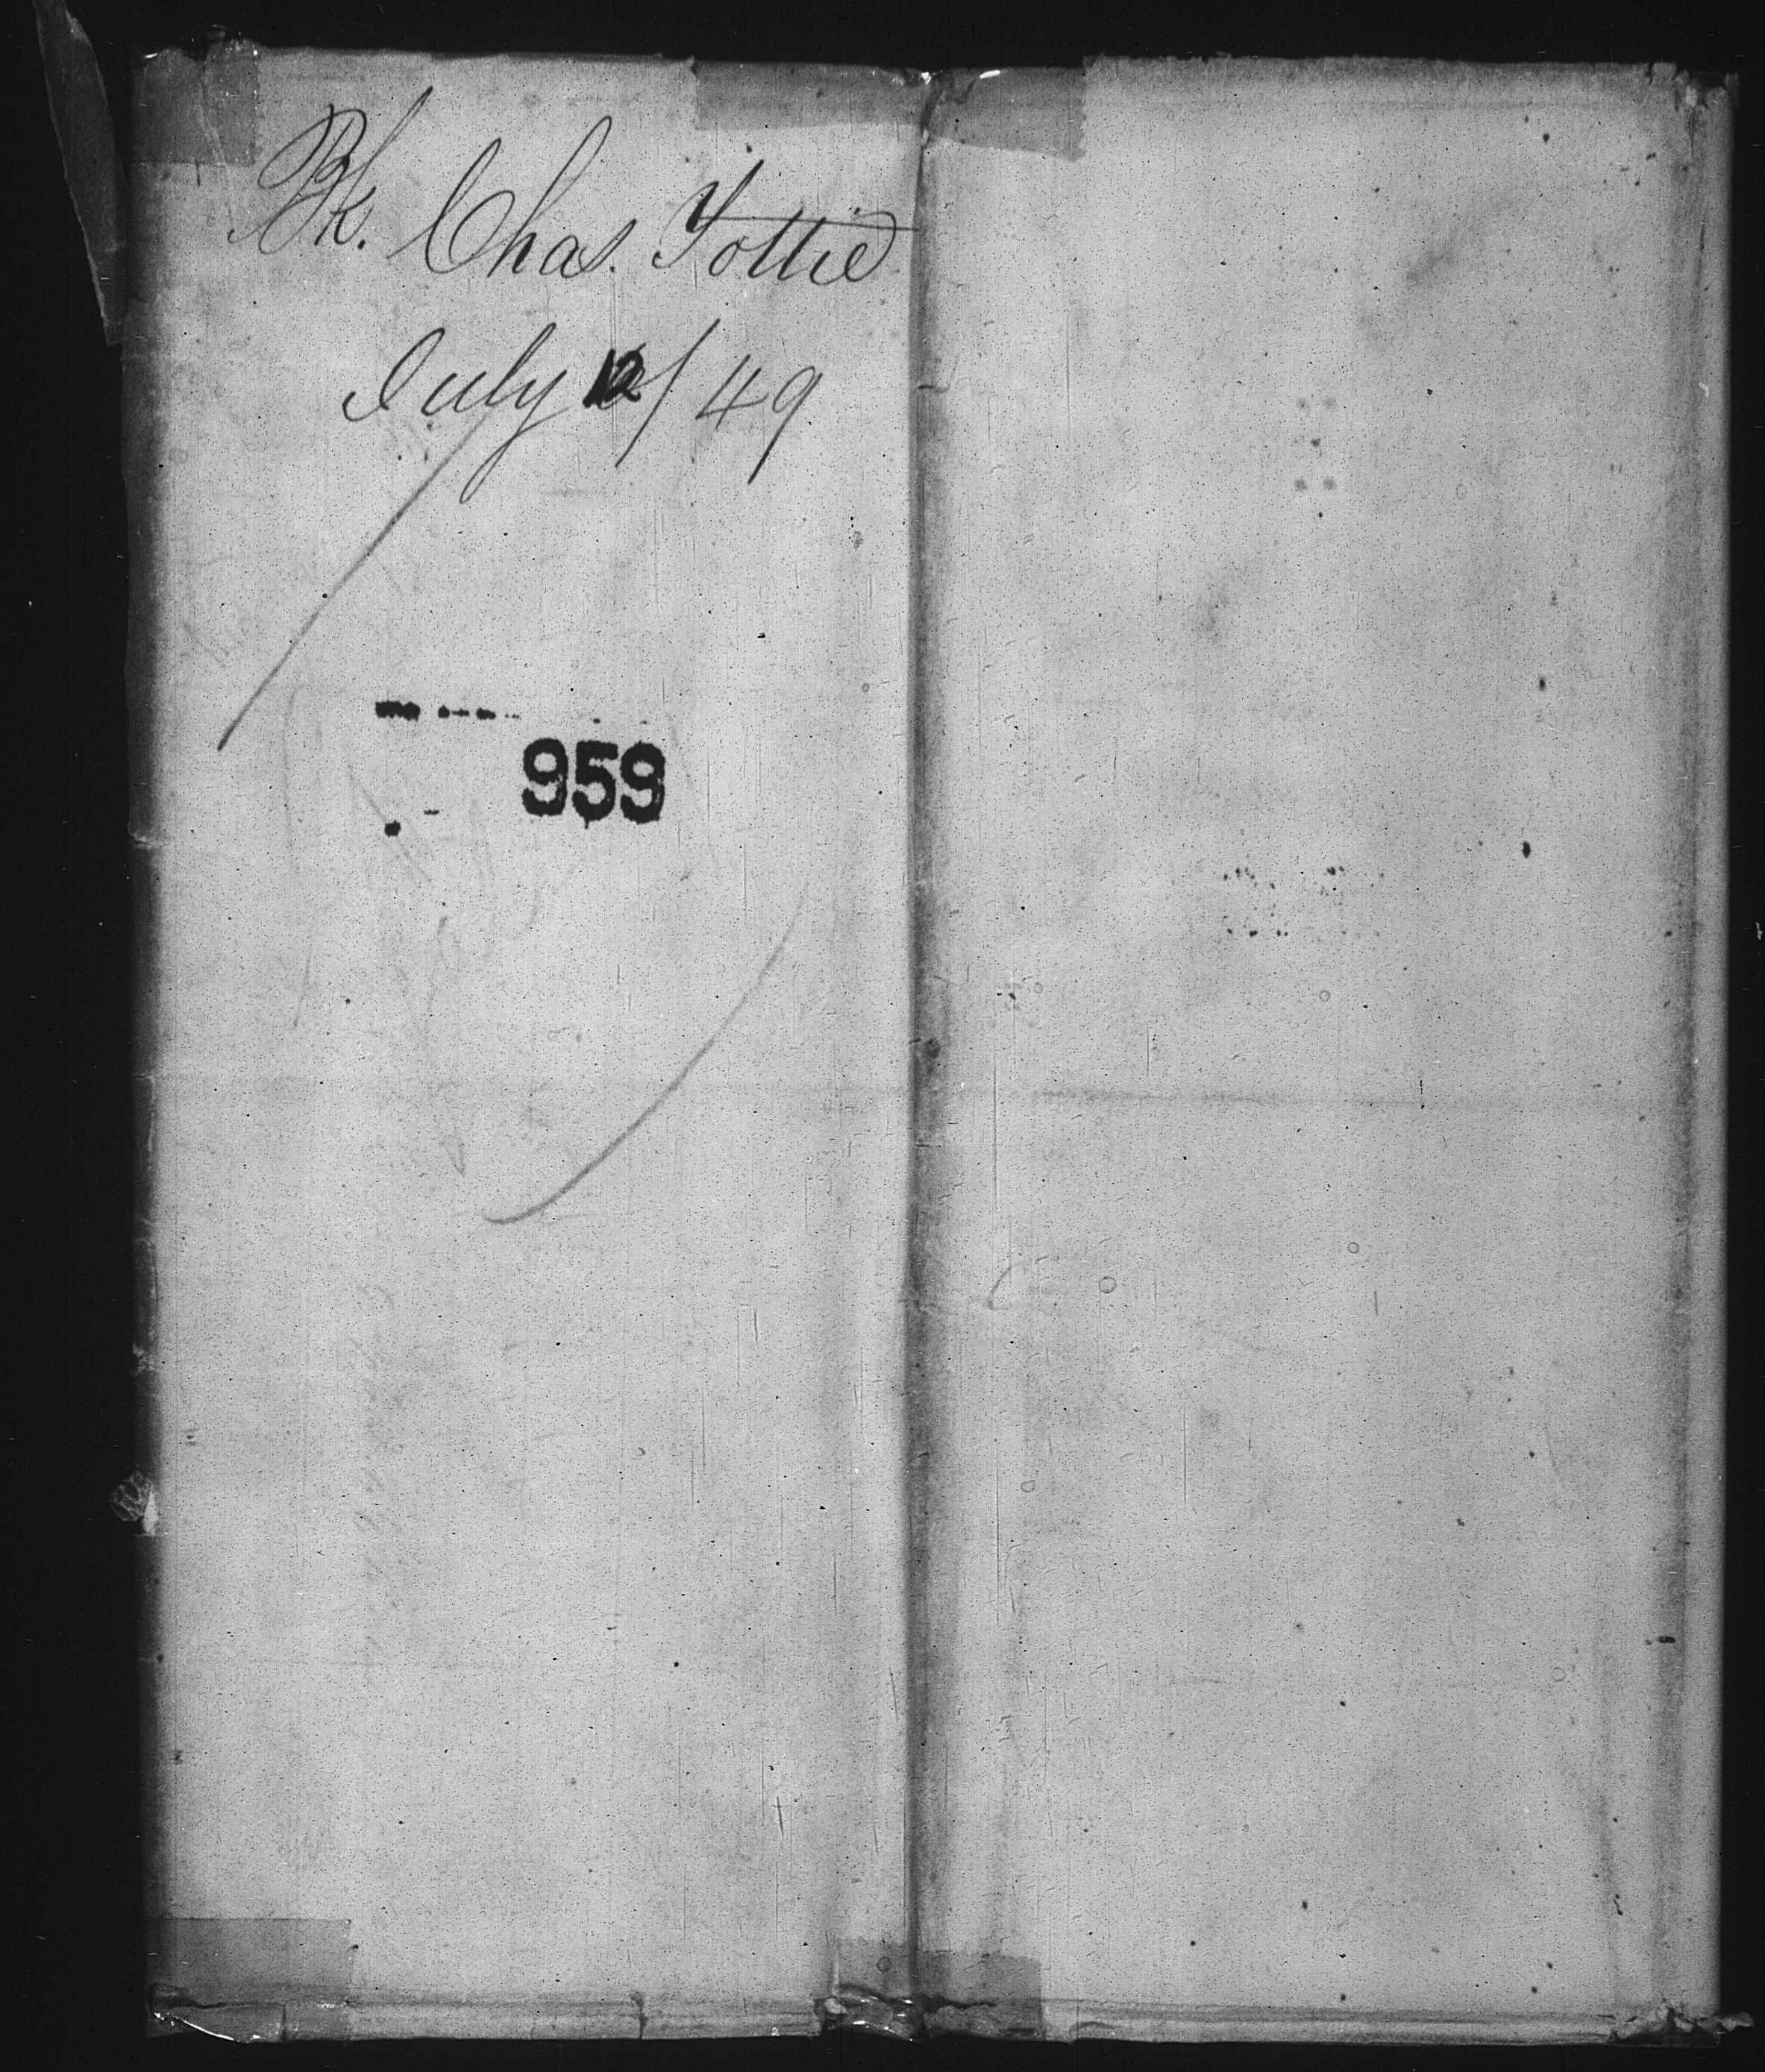 Bk. Chas. Tottie
July 12/49
959